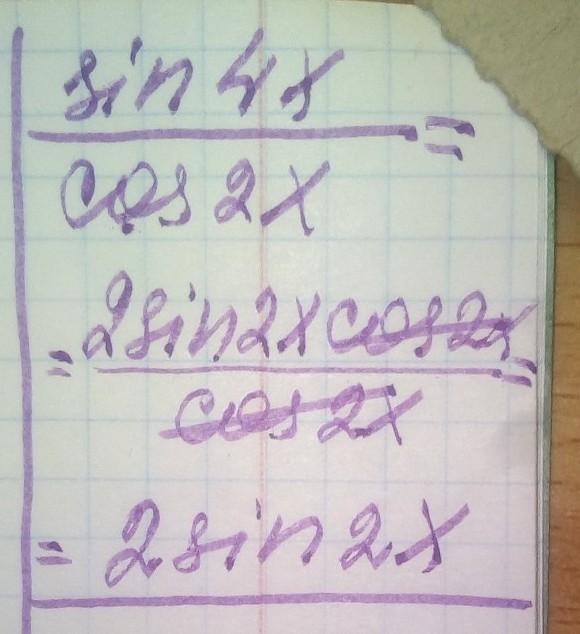 sin 4x
=
cos 2x
2 sin 2x cos 2x
= =
cos 2x
= 2 sin 2x